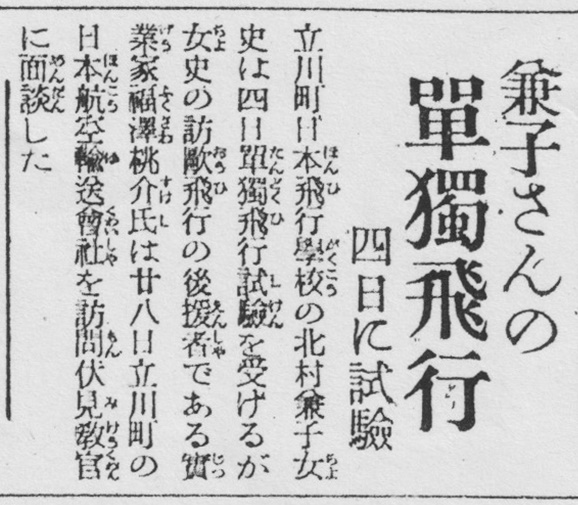 兼子さんの
單獨飛行
四日に試驗
立川町日本飛行學校の北村兼子女
史は四日單獨飛行試驗を受けるが
女史の訪歐飛行の後援者である實
業家福澤桃介氏は廿八日立川町の
日本航空輸送會社を訪問伏見敎官
に面談した